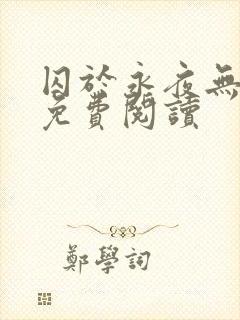 囚於永夜無
免費閱讀
鄭學詞